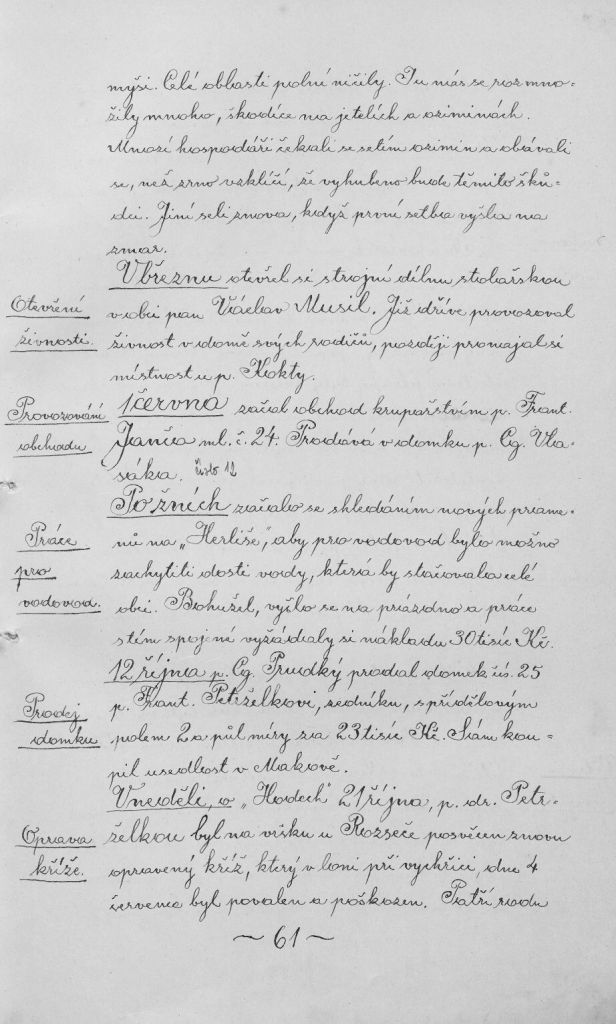 myši. Celé oblasti polní ničily. Tu nás se rozmno-
žily mnoho, škodíce na jetelích a oziminách.
Mnozí hospodáři čekali se setím ozimin a obávali
se, než zrno vzklíčí, že vyhubeno bude těmito šků-
dci. Jiní seli znova, když první setba vyšla na
zmar.
V březnu otevřel si strojní dílnu stolařskou
Otevření
v obci pan Václav Musil. Již dříve provozoval
živnosti.
živnost v domě svých rodičů, později pronajal si
místnost u p. Kokty.
Provozování
1 června začal obchod krupařstvím p. Frant.
obchodu
Janča ml. č. 24. Prodává v domku p. Cyr. Vla-
sáka. číslo 12
Po žních začalo se s hledáním nových prame-
Práce
nů na „Herliše", aby pro vodovod bylo možno
pro
zachytiti dosti vody, která by stačovala celé
vodovod.
obci. Bohužel, vyšlo se na prázdno a práce
s tím spojené vyžádaly si nákladu 30 tisíc Kč.
12 října p. Cyr. Prudký prodal domek čís. 25
Prodej
p. Frant. Petrželkovi, zedníku, s přídělovým
domku
polem 2 a půl míry za 23 tisíc Kč. Sám kou-
pil usedlost v Makově.
V neděli, o „Hodech" 21 října, p. dr. Petr-
Oprava
želkou byl na vršku u Rozseče posvěcen znovu
kříže.
opravený kříž, který v loni při vychřici, dne 4
července byl povalen a poškozen. Patří rodu
~ 61 ~